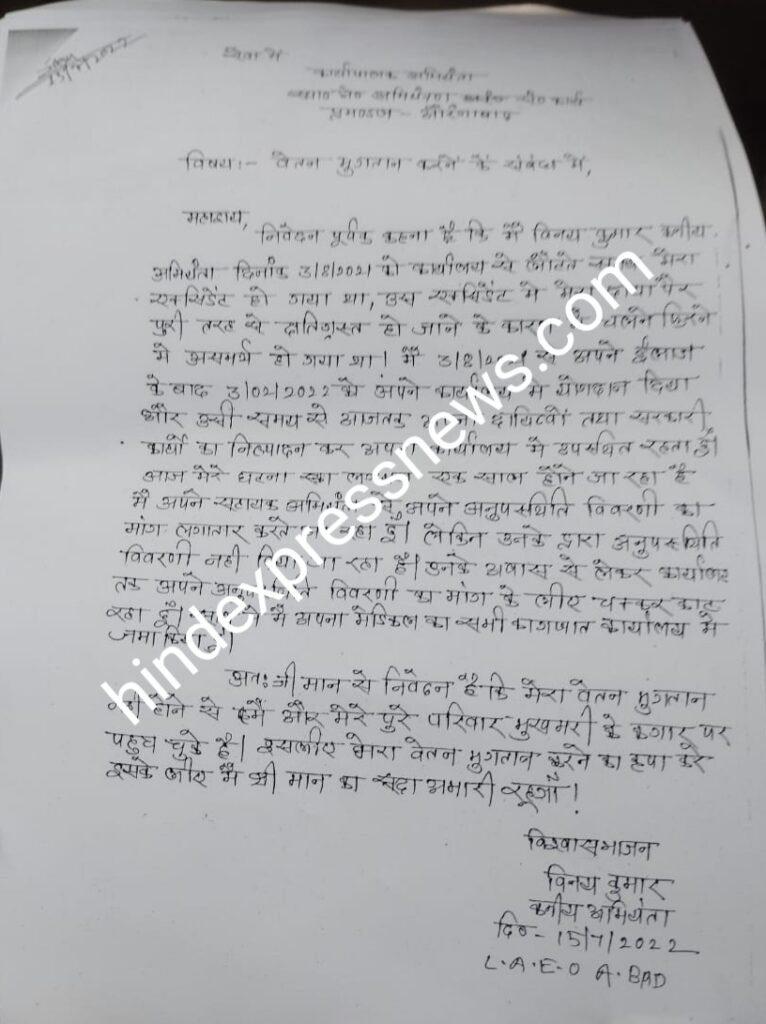 सेवा में
कार्यपालक अभियंता
प्रमण्डल - औरंगाबाद
विषय:- वेतन भुगतान करने के संबंध में,
महाशय,
निवेदन पूर्वक कहना है कि मैं विनय कुमार कनीय
अभियंता दिनांक 3/8/2021 को कार्यालय से लौटते मेरा
एक्सिडेंट हो गया था, उस एक्सिडेंट में पैर
पुरी तरह से क्षतिग्रस्त हो जाने के कारण चलने फिरने
मे असमर्थ हो गया था। मैं से अपने ईलाज
के बाद 3/02/2022 को अपने कार्यालय में योगदान दिया
और उसी समय से आजतक दायित्वों तथा सरकारी
कार्यो का निष्पादन कर अपना कार्यालय मे उपस्थित रहता हूँ।
आज मेरे घटना का एक साल होने जा रहा है
मै अपने सहायक अभियंता से अपने अनुपस्थिति विवरणी का
मांग लगातार करते रहा हूँ। लेकिन उनके द्वारा अनुपस्थिति
विवरणी नही दिया जा रहा है। उनके आवास से लेकर कार्यालय
तक अपने अनुपस्थिति विवरणी का मांग के लीए चक्कर काट
रहा हूँ। मै अपना मेडिकल का सभी कागजात कार्यालय मे
जमा किया हूँ।
अतः श्री मान से निवेदन है कि मेरा वेतन भुगतान
नही होने से हमें और मेरे पुरे परिवार भुखमरी के कगार पर
पहुच चुके है। इसलीए मेरा वेतन भुगतान करने का कृपा करे
इसके लीए मैं श्री मान का सदा अभारी रहूगाँ।
विश्वासभाजन
विनय कुमार
कनीय अभियंता
दि०- 15/7/2022
L.A.E.O A.BAD
hindexpressnews.com